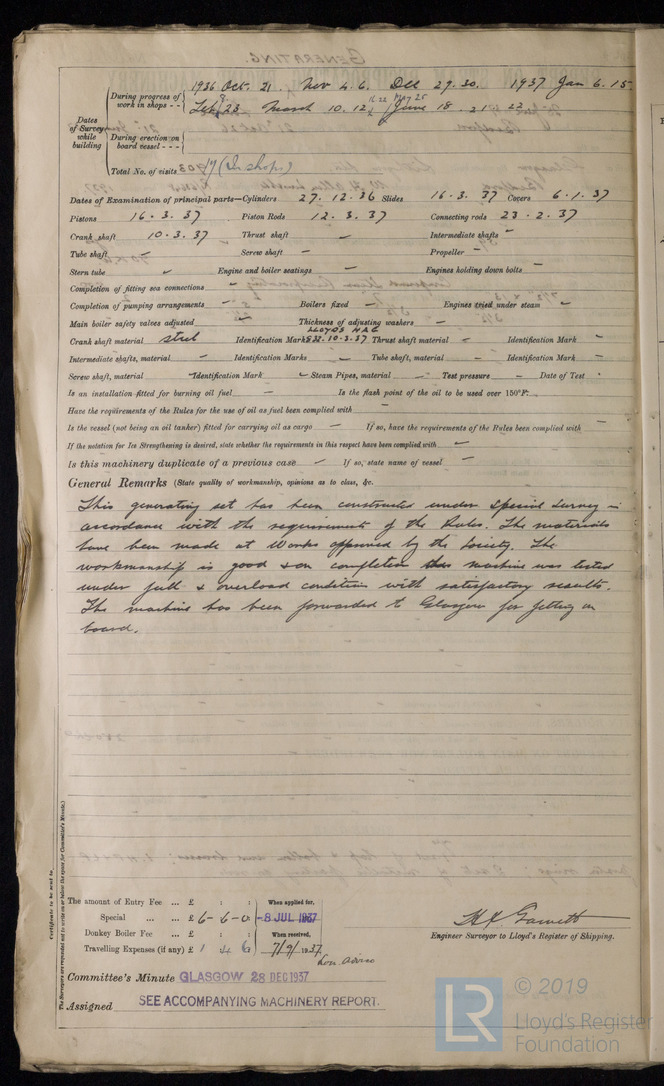 GENERATING.
1936 Oct. 21. Nov 4. 6. Dec 29. 30. 1937 Jan 6. 15.
During progress of work in shops - -
Feb 9. 23. March 10. 12. 16 22 May 25 June 18. 21. 22.
Dates of Survey while building
During erection on board vessel - - -
Total No. of visits 17 (In shops)
Dates of Examination of principal parts—Cylinders 27. 12. 36 Slides 16. 3. 37 Covers 6. 1. 37
Pistons 16. 3. 37 Piston Rods 12. 3. 37 Connecting rods 23. 2. 37
Crank shaft 10. 3. 37 Thrust shaft – Intermediate shafts –
Tube shaft – Screw shaft – Propeller –
Stern tube – Engine and boiler seatings – Engines holding down bolts –
Completion of fitting sea connections –
Completion of pumping arrangements – Boilers fixed – Engines tried under steam –
Main boiler safety valves adjusted – Thickness of adjusting washers –
LLOYDS HAG
Crank shaft material steel Identification Mark 10.3.37 Thrust shaft material – Identification Mark –
Intermediate shafts, material – Identification Marks – Tube shaft, material – Identification Mark –
Screw shaft, material – Identification Mark – Steam Pipes, material – Test pressure – Date of Test –
Is an installation fitted for burning oil fuel – Is the flash point of the oil to be used over 150°F. –
Have the requirements of the Rules for the use of oil as fuel been complied with –
Is the vessel (not being an oil tanker) fitted for carrying oil as cargo – If so, have the requirements of the Rules been complied with –
If the notation for Ice Strengthening is desired, state whether the requirements in this respect have been complied with –
Is this machinery duplicate of a previous case – If so, state name of vessel –
General Remarks (State quality of workmanship, opinions as to class, &c.
This generating set has been constructed under Special Survey in
accordance with the requirements of the Rules. The materials
have been made at Works approved by the Society. The
workmanship is good & on completion this machine was tested
under full & overload conditions with satisfactory results.
The machine has been forwarded to Glasgow for fitting on
board.
Certificate to be sent to
The Surveyors are requested not to write on or below the space for Committee's Minute.
The amount of Entry Fee ... £ : : When applied for,
Special ... ... £ 6 - 6 - 0 -8 JUL 1937
Donkey Boiler Fee ... £ : : When received,
Travelling Expenses (if any) £ 1 4 6 7/9/1937
Engineer Surveyor to Lloyd's Register of Shipping.
Committee's Minute GLASGOW 28 DEC 1937
Assigned SEE ACCOMPANYING MACHINERY REPORT.
LR
© 2019
Lloyd's Register
Foundation